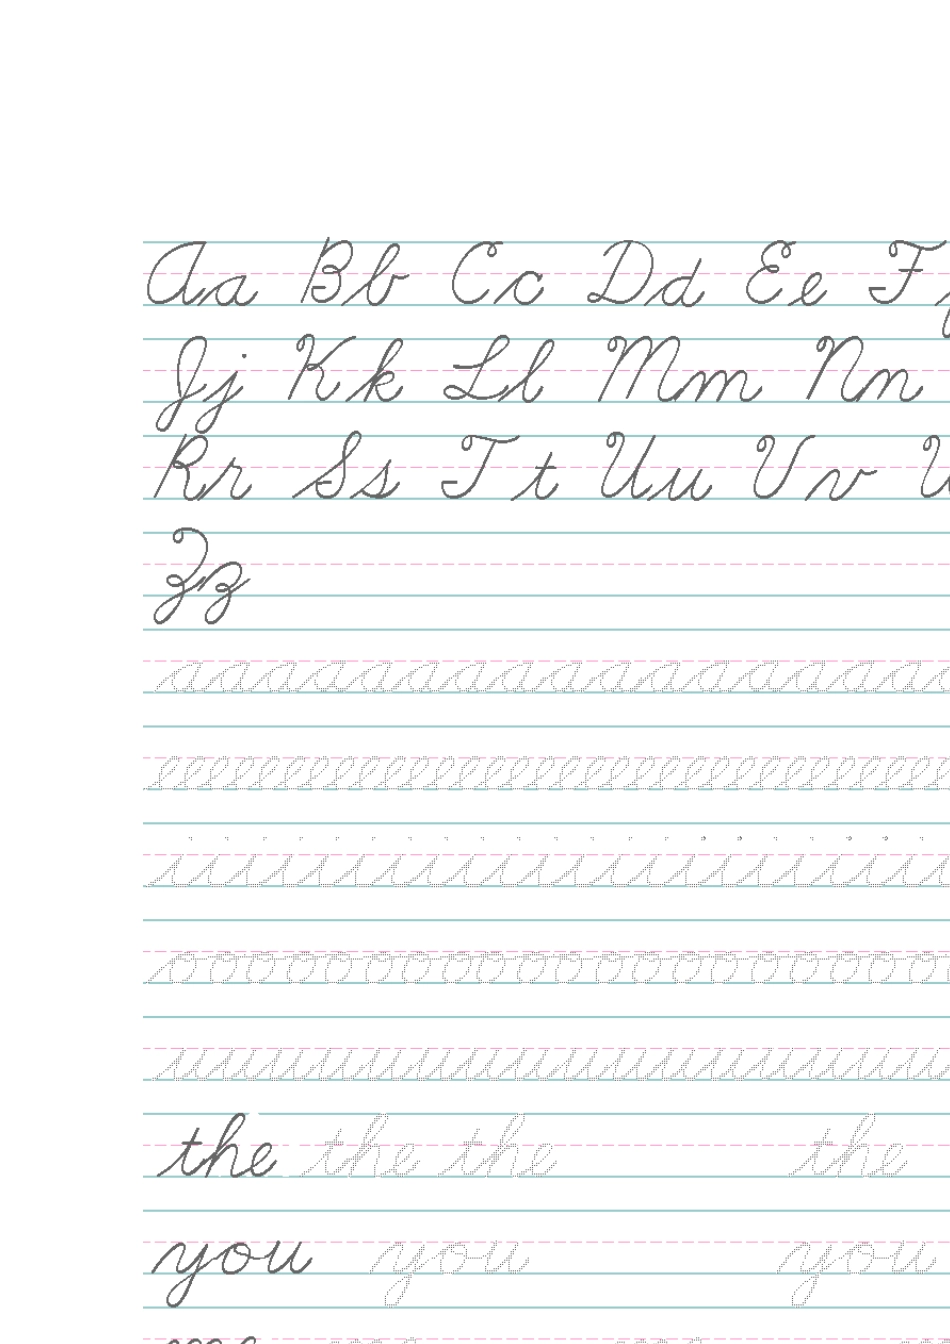 Aa Bb Cc Dd Ee F
Jj Kk Ll Mm Nn
Rr Ss Tt Uu Vv
Zz
aaaaaaaaaaaaaaaaaa
eeeeeeeeeeeeeeeeeeeeeeee
iiiiiiiiiiiiiiiiiiiii
oooooooooooooooooooo
uuuuuuuuuuuuuuuuu
the the the the
you you you